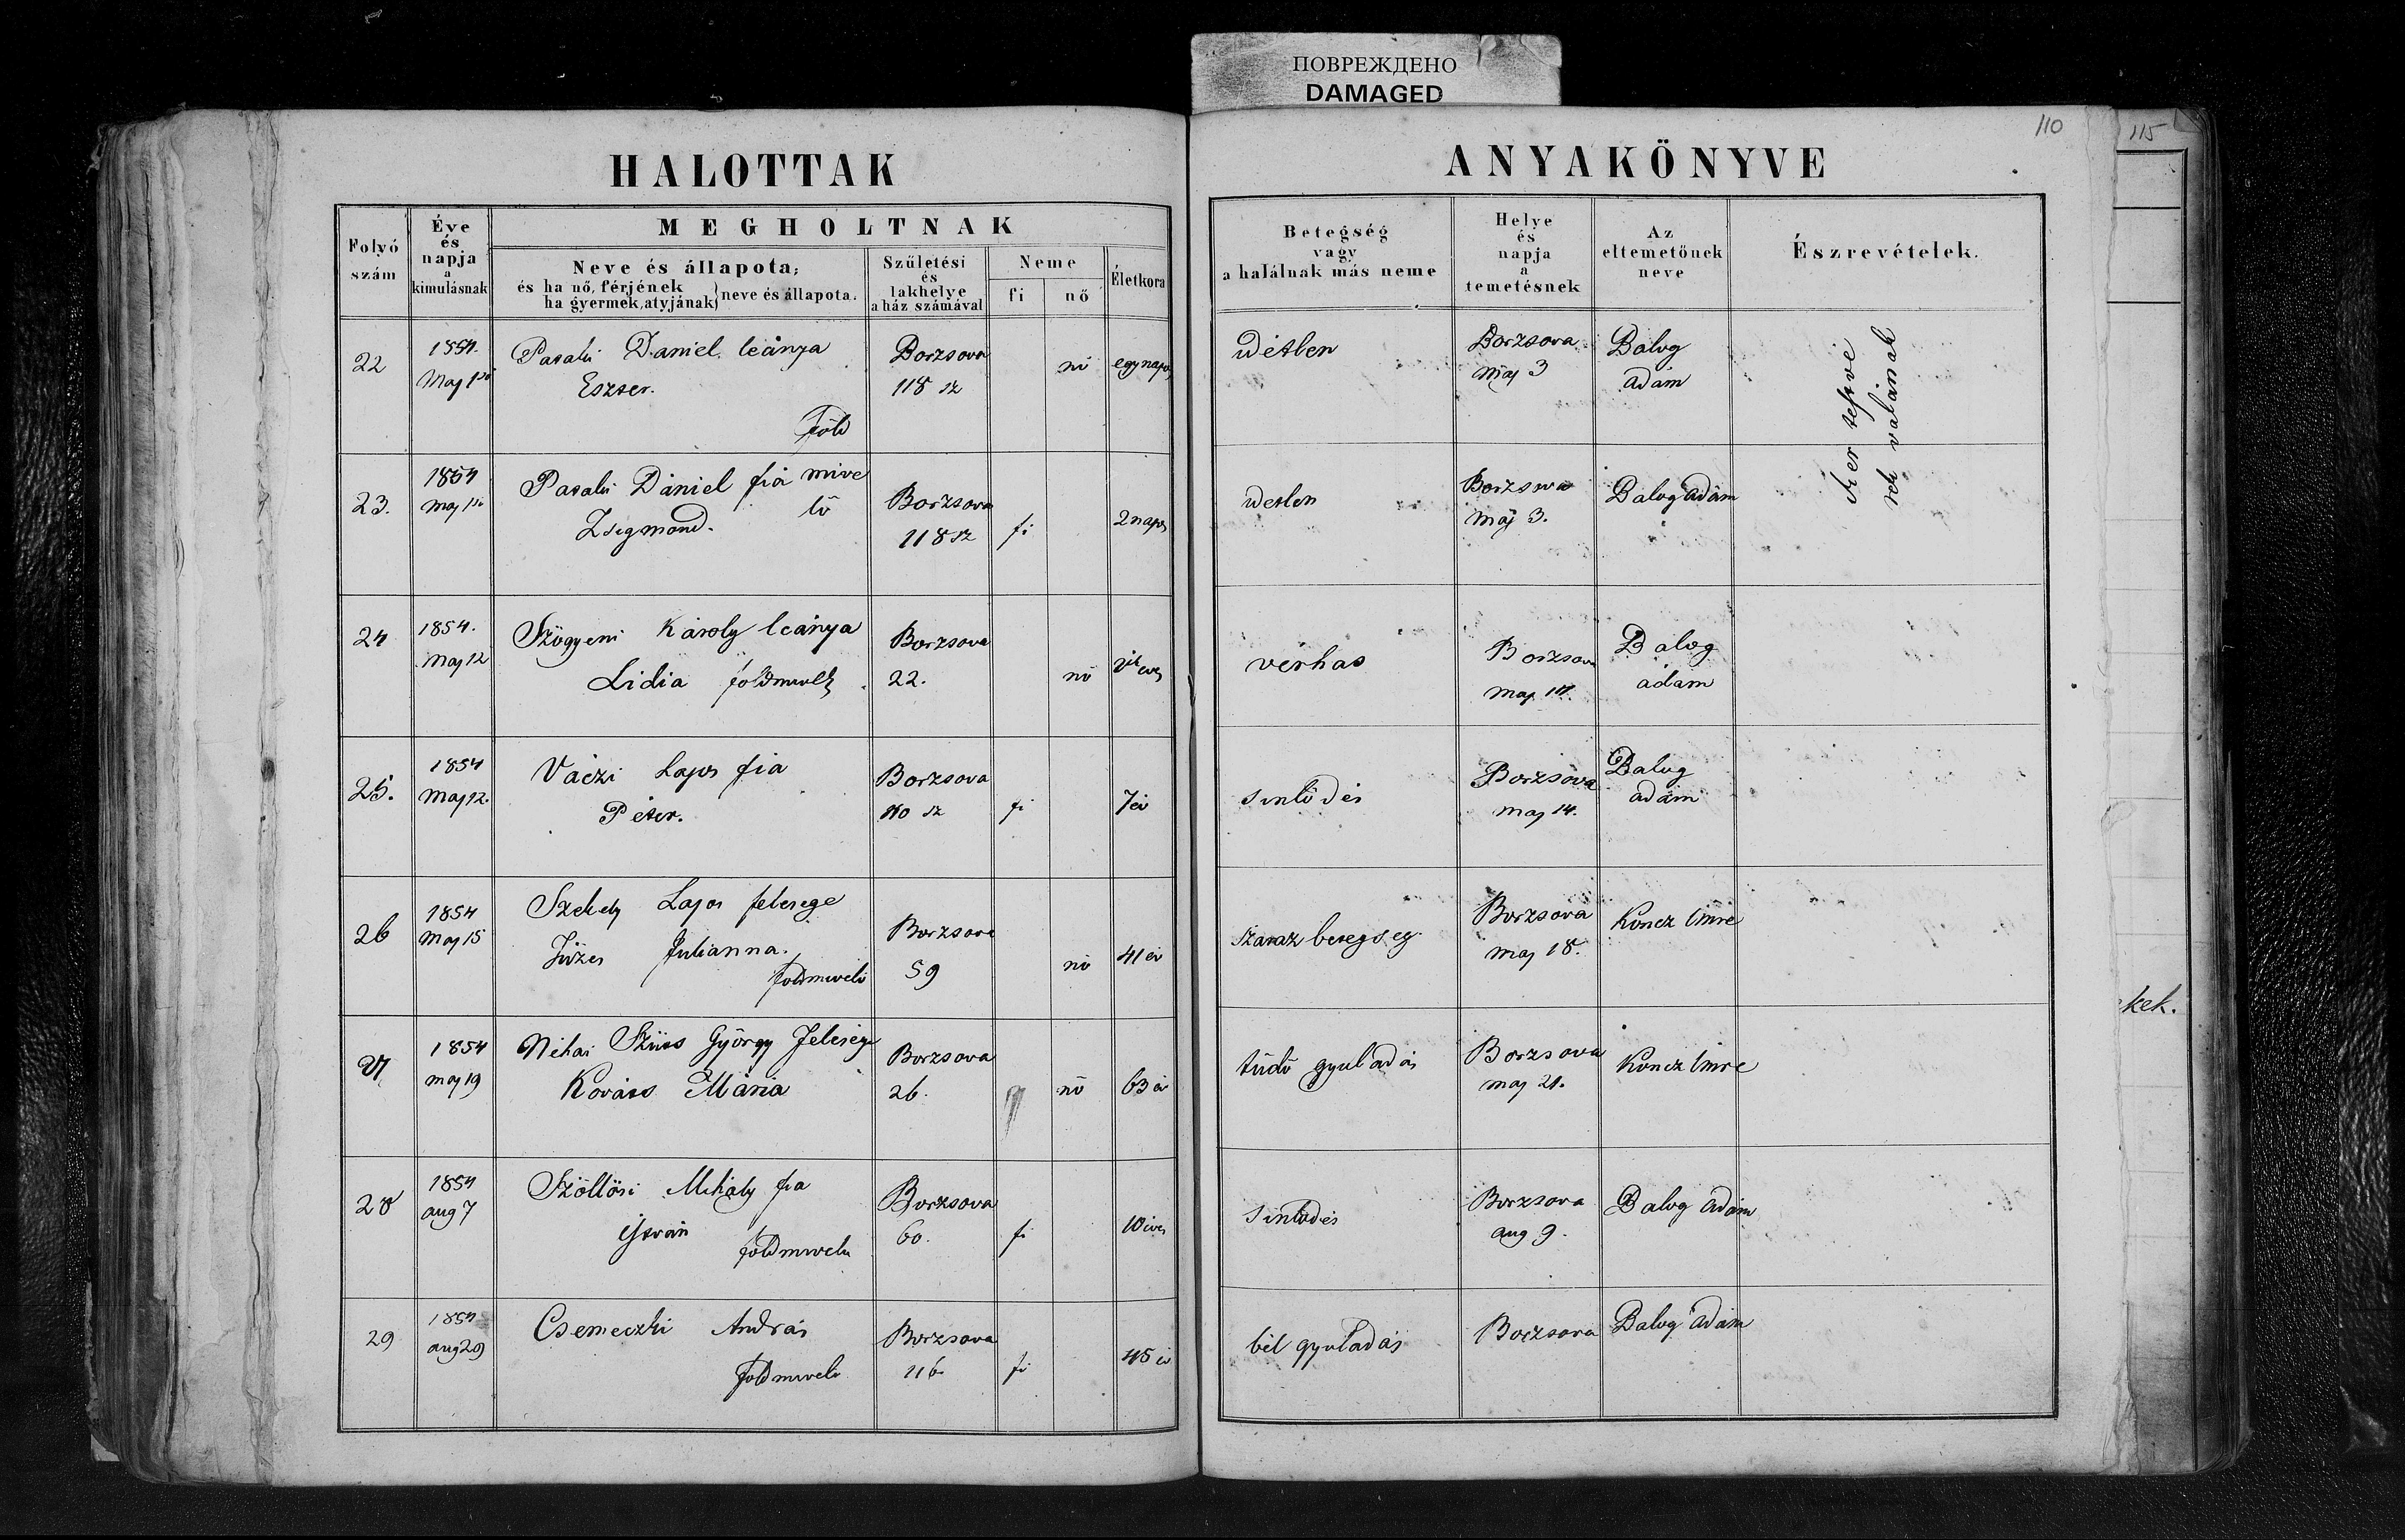 ПОВРЕЖДЕНО
DAMAGED
110
115
HALOTTAK
ANYAKÖNYVE
Folyó
szám
Éve
és
napja
a
kimulásnak
MEGHOLTNAK
Neve és állapota;
és ha nő, férjének
ha gyermek, atyjának} neve és állapota.
Születési
és
lakhelye
a ház számával
Neme
fi
nő
Életkora
Betegség
vagy
a halálnak más neme
Helye
és
napja
a
temetésnek
Az
eltemetőnek
neve
Észrevételek.
22
1854.
Maj
Daniel leánya
Eszter.
Föld
Borzsova
118 sz
nő
egy napos
idétlen
Borzsova
Maj 3
Balog
Adám
Iker testvé
rek valának
23.
1854
Maj
Dániel fia mive
lő
Zsigmond.
Borzsova
118 sz
fi
2 napos
idetlen
Borzsova
Máj 3.
Balog Adám
24
1854.
Maj 12
Szögyeni Károly leánya
Lidia földmivelő
Borzsova
22.
nő
verhas
Borzsova
Maj 14.
Balog
ádám
25.
1854
Maj 12.
Váczi Lajos fia
Péter.
Borzsova
110 sz
fi
7 év
sinlődés
Borzsova
maj 14.
Balog
adám
26
1854
Maj 15
Szekely Lajos felesege
Julianna.
földmivelő
Borzsova
59
nő
41 év
szaraz betegseg
Borzsova
maj 18.
Koncz Imre
27
1854
maj 19
Néhai Szücs György Felesége
Kovács Mária
Borzsova
26.
nő
63 év
tüdő gyuladás
Borzsova
maj 21.
Koncz Imre
28
1854
aug 7
Szöllösi Mihály fia
István
földmivelő
Borzsova
60.
fi
10 éves
sinlődés
Borzsova
aug 9.
Balog Adám
29
1854
aug 29
Csemeczki András
földmivelő
Borzsova
116
fi
45 év
bél gyuladás
Borzsova
Balog Adám
kek.